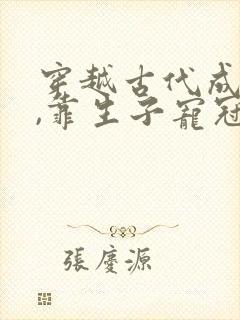 穿越古代成
,靠生子寵冠
張慶源